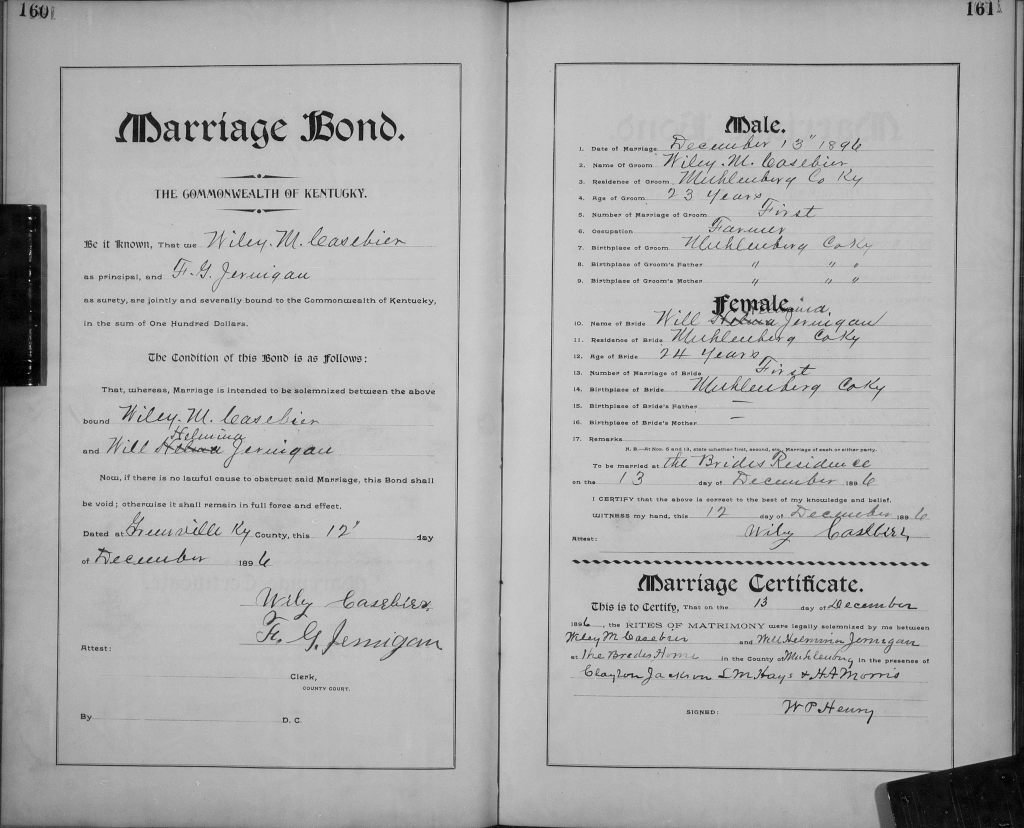 160
Marriage Bond.
THE COMMONWEALTH OF KENTUCKY.
Be it Known, That we Wiley. M. Casebier
as principal, and F. G. Jernigan
as surety, are jointly and severally bound to the Commonwealth of Kentucky,
in the sum of One Hundred Dollars.
The Condition of this Bond is as Follows:
That, whereas, Marriage is intended to be solemnized between the above
bound Wiley. M. Casebier
Helmina
and Will Jernigan
Now, if there is no lawful cause to obstruct said Marriage, this Bond shall
be void; otherwise it shall remain in full force and effect.
Dated at Greenville Ky County, this 12" day
of December 1896
Wily Casebier,
F. G. Jernigan
Attest:
Clerk,
COUNTY COURT.
By D. C.
161
Male.
1. Date of Marriage December 13" 1896
2. Name Of Groom Wiley. M. Casebier
3. Residence of Groom Muhlenberg Co Ky
4. Age of Groom 23 Years
5. Number of Marriage of Groom First
6. Occupation Farmer
7. Birthplace of Groom Muhlenberg Co Ky
8. Birthplace of Groom's Father " " "
9. Birthplace of Groom's Mother " " "
Female.
Helmina
10. Name of Bride Will Jernigan
11. Residence of Bride Muhlenberg Co Ky
12. Age of Bride 24 Years
13. Number of Marriage of Bride First
14. Birthplace of Bride Muhlenberg Co Ky
15. Birthplace of Bride's Father —
16. Birthplace of Bride's Mother —
17. Remarks
N. B.—At Nos. 5 and 13, state whether first, second, etc., Marriage of each or either party.
To be married at the Brides Residence
on the 13 day of December 1896
I CERTIFY that the above is correct to the best of my knowledge and belief.
WITNESS my hand, this 12 day of December 1896
Wily Casebier,
Attest:
Marriage Certificate.
This is to Certify, That on the 13 day of December
1896, the RITES OF MATRIMONY were legally solemnized by me between
Wiley M Casebier and Will Helmina Jernegan
at the Brades Home in the County of Muhlenburg in the presence of
Clayton Jackson S. M. Hays & H. A Morris
SIGNED: W P Henry